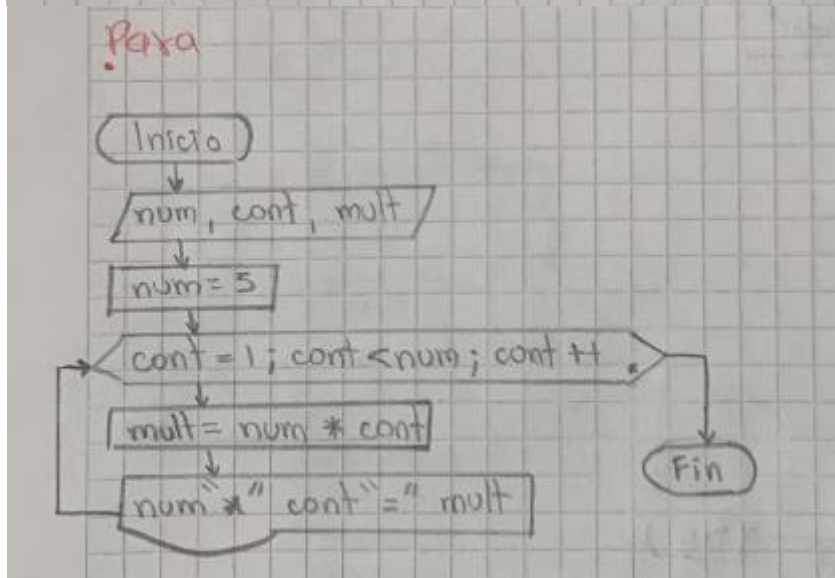 Para
Inicio
num, cont, mult
num = 5
cont = 1; cont < num; cont ++
mult = num * cont
Fin
num "*" cont "=" mult